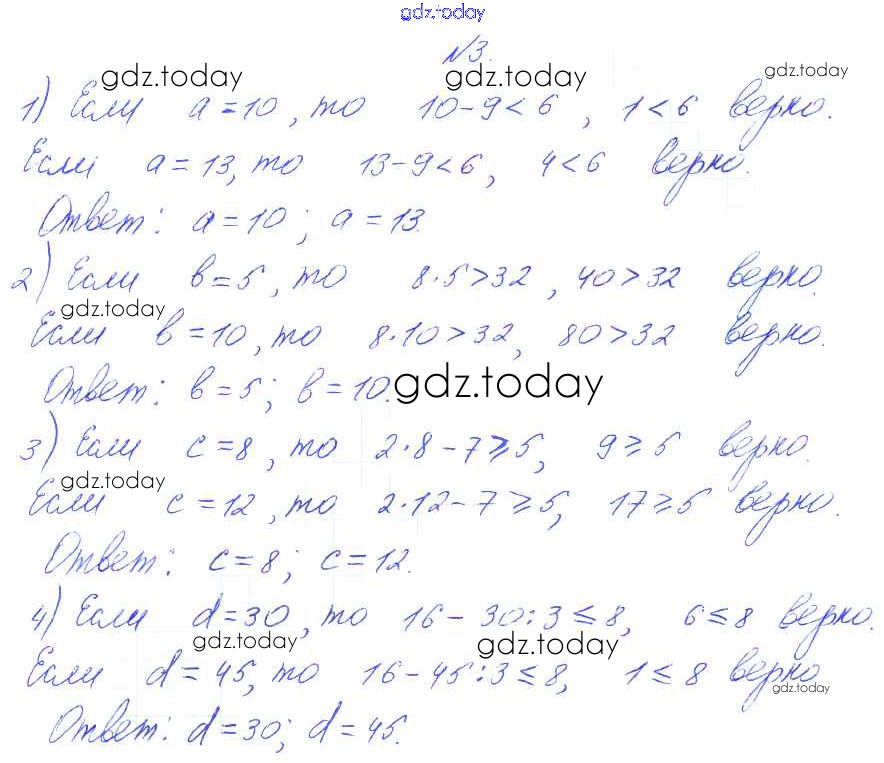 gdz.today
№3.
gdz.today gdz.today gdz.today
1) Если a=10, то 10-9<6, 1<6 верно.
Если a=13, то 13-9<6, 4<6 верно.
Ответ: a=10; a=13.
2) Если в=5, то 8·5>32, 40>32 верно.
gdz.today
Если в=10, то 8·10>32, 80>32 верно.
Ответ: в=5; в=10. gdz.today
3) Если c=8, то 2·8-7⩾5, 9⩾5 верно.
gdz.today
Если c=12, то 2·12-7⩾5, 17⩾5 верно.
Ответ: c=8; c=12.
4) Если d=30, то 16-30:3⩽8, 6⩽8 верно.
gdz.today gdz.today
Если d=45, то 16-45:3⩽8, 1⩽8 верно
gdz.today
Ответ: d=30; d=45.